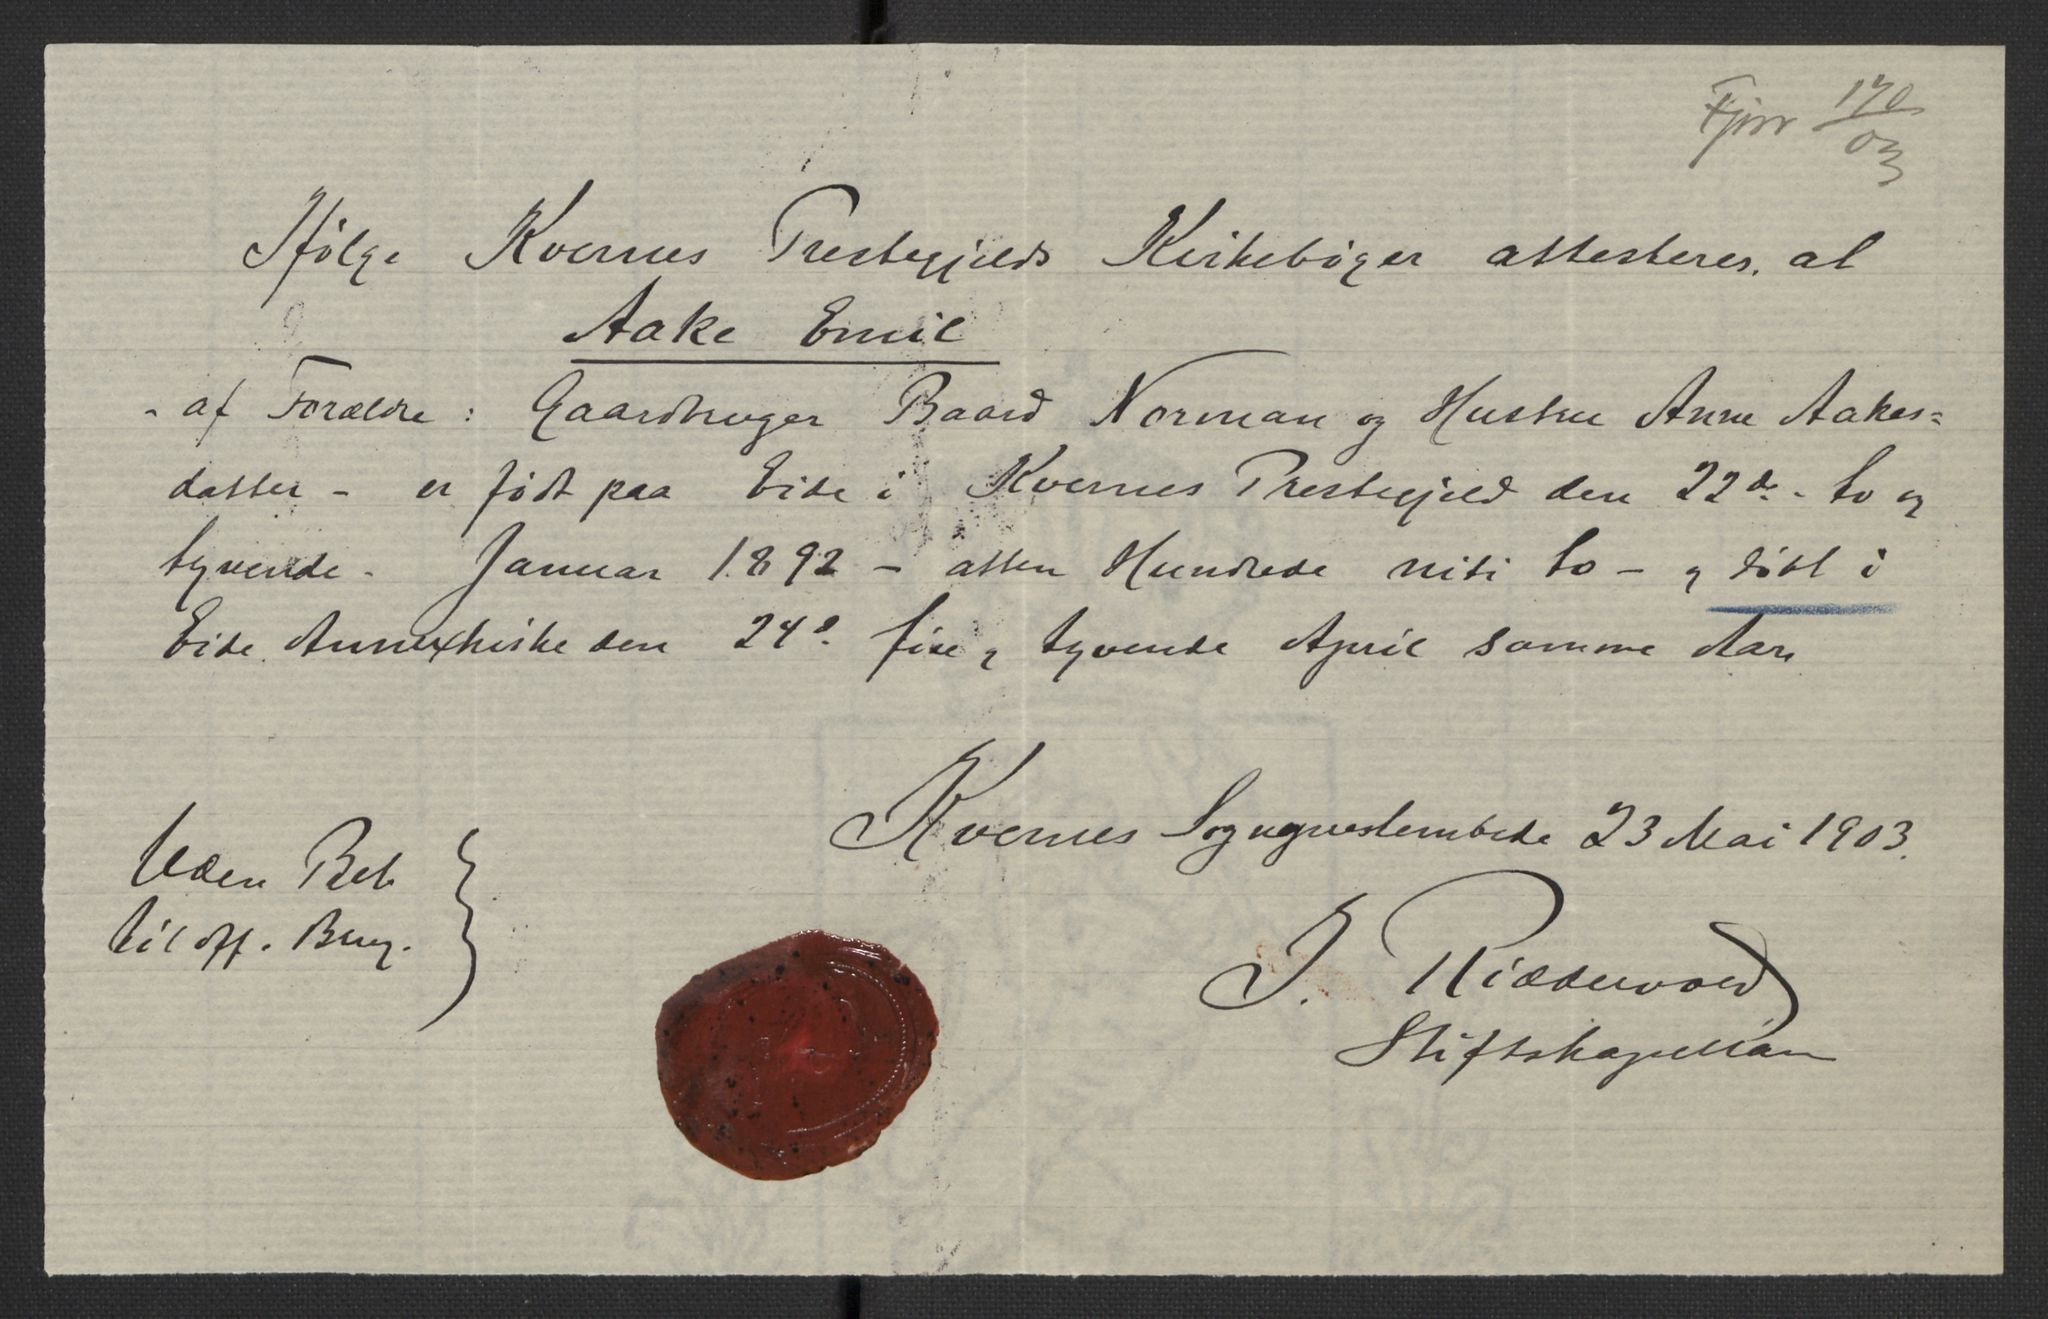 170
03
Ifølge Kvernes Prestegjelds Kirkebøger attesteres, at
Aake Emil
- af Forældre : Gaardbruger Baard Norman og Hustru Anne Aakes=
datter - er født paa Eide i Kvernes Prestegjeld den 22de - to og
tyvende - Januar 1892 - atten Hundrede niti to - og døbt i
Eide Annexkirke den 24de fire og tyvende April samme Aar.
Kvernes Sogneprestembede 23 Mai 1903.
Uden Bet.
til off. Brug.
J. Riddervold
Stiftskapellan